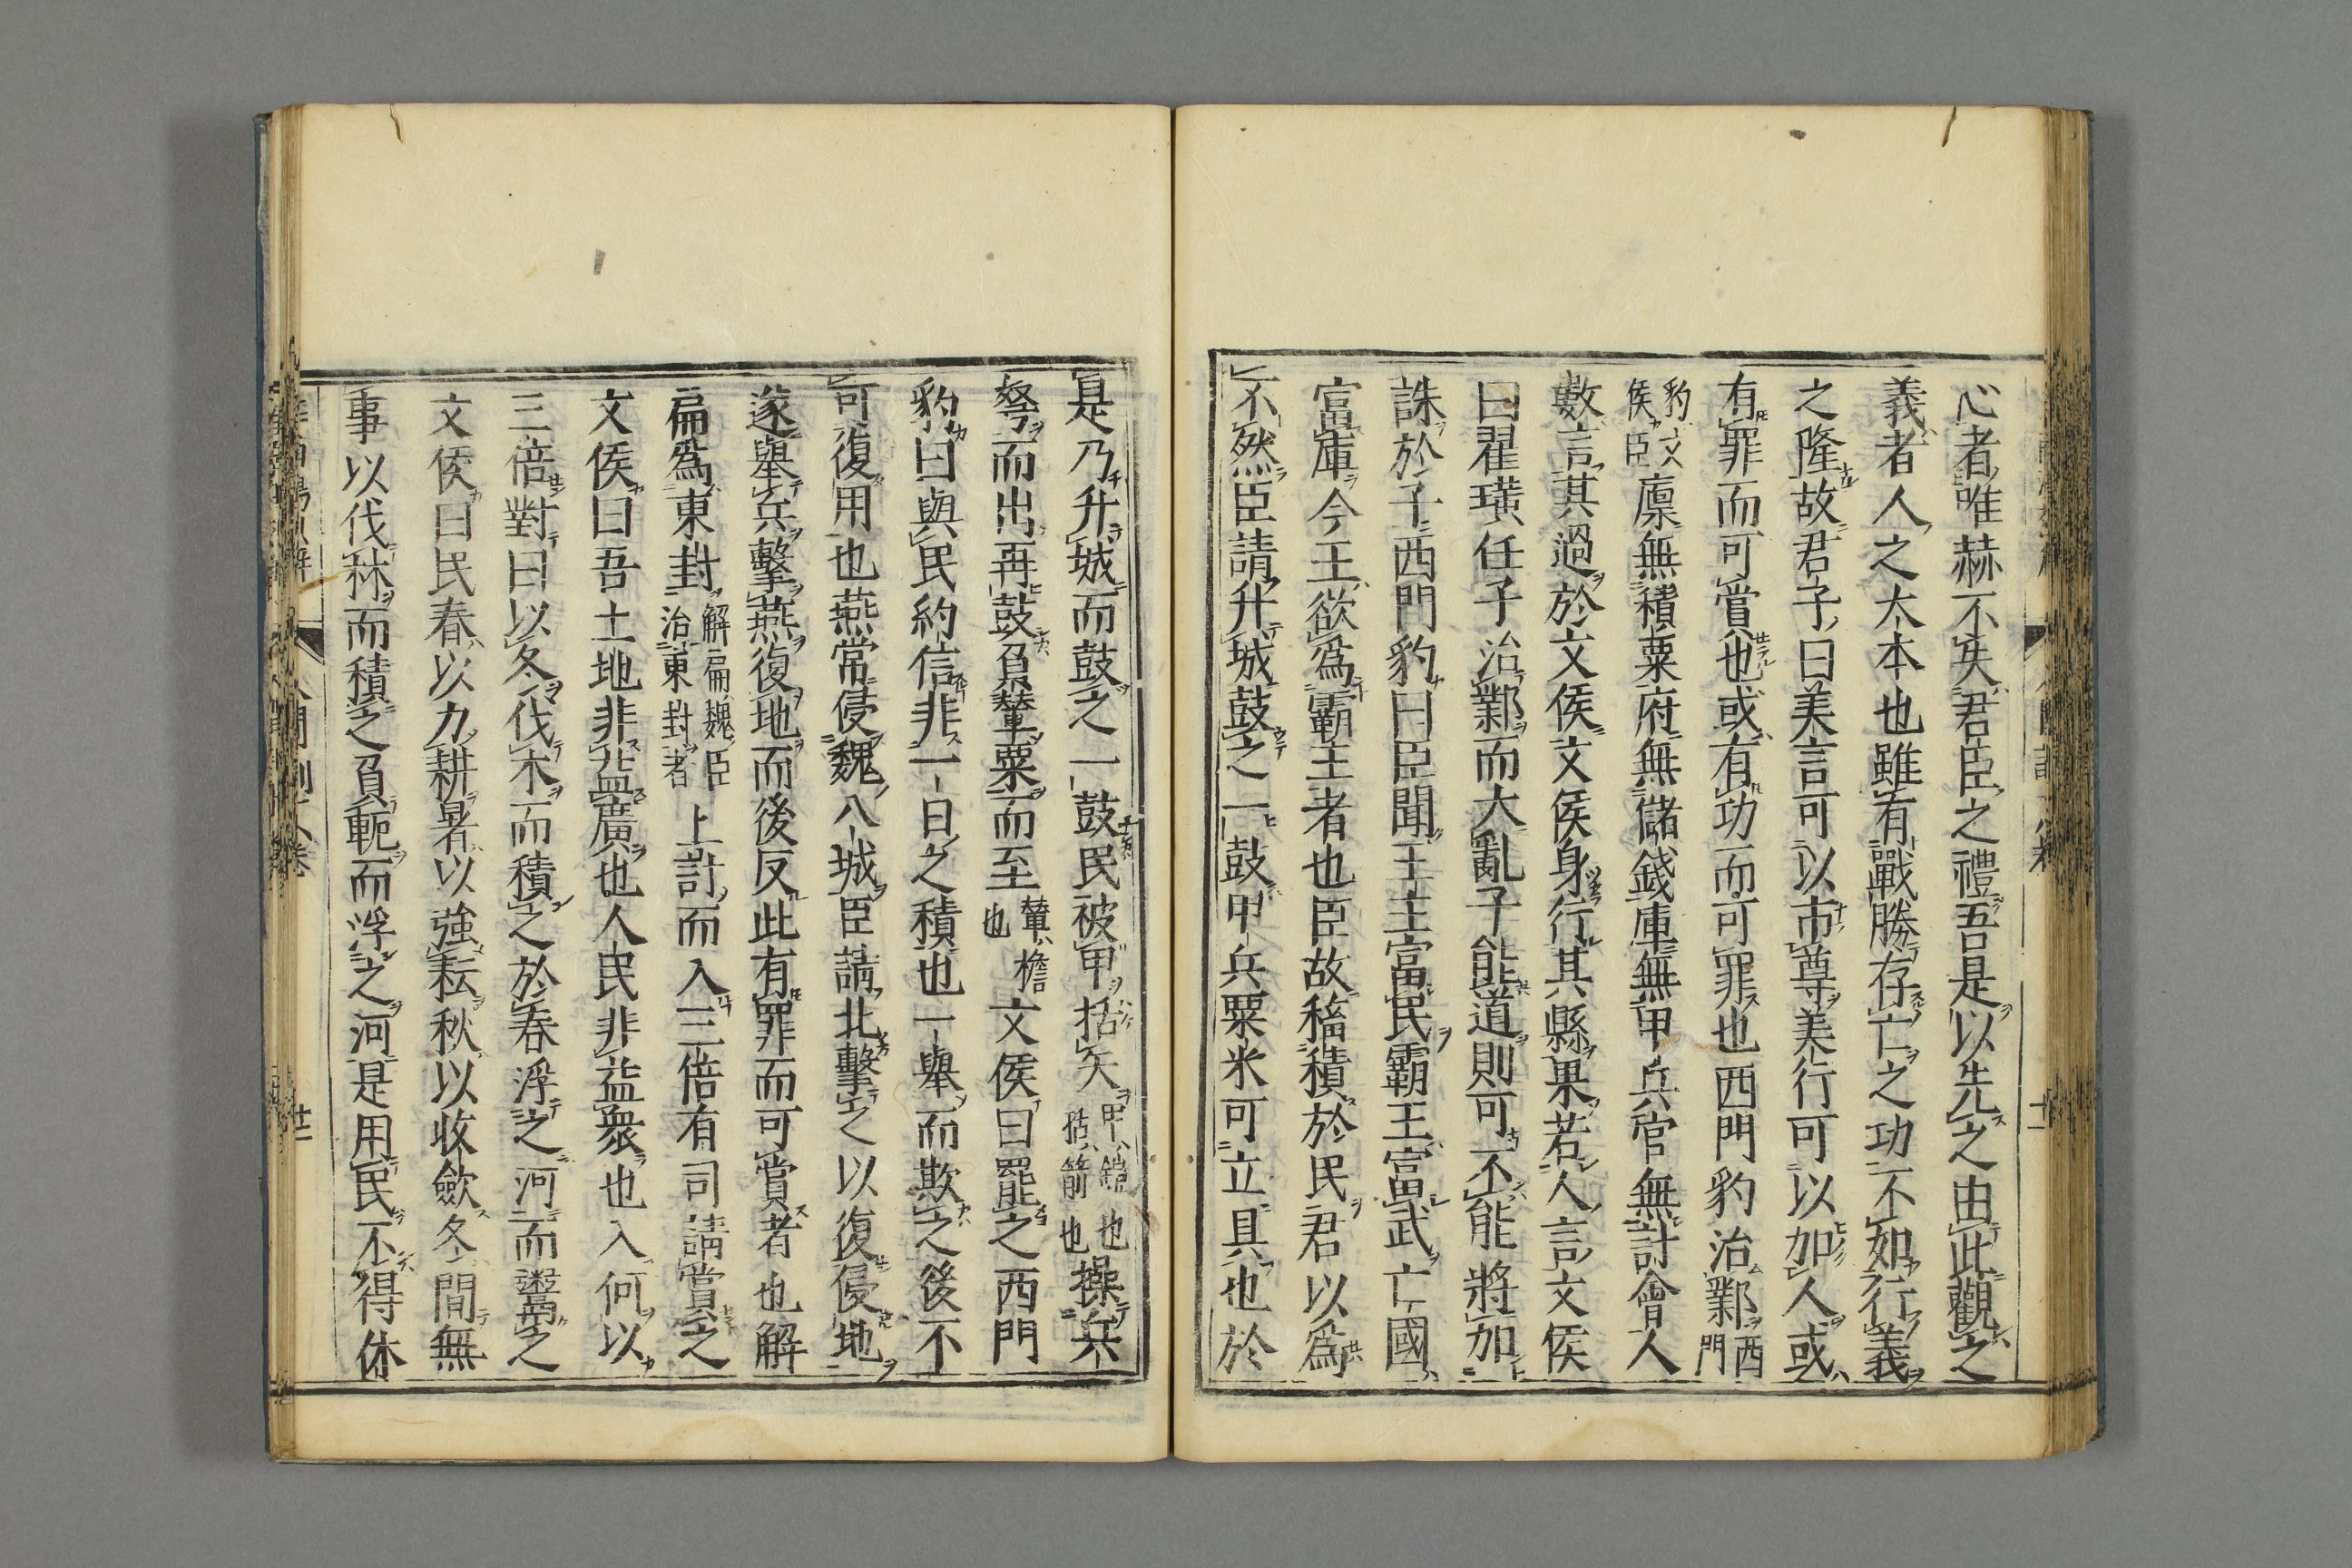 心者唯赫不失君臣之禮吾是以先之由此觀之
義者人之大本也雖有戰勝存亡之功不如行義
之隆故君子曰美言可以市尊美行可以加人或
有罪而可賞也或有功而可罪也西門豹治鄴西門
豹文侯臣廩無積粟府無儲錢庫無甲兵官無計會人
數言其過於文侯文侯身行其縣果若人言文侯
曰翟璜任子治鄴而大亂子能道則可不能將加
誅於子西門豹曰臣聞王主富民霸王富武亡國
富庫今王欲為霸王者也臣故稸積於民君以為
不然臣請升城鼓之一鼓甲兵粟米可立具也於
是乃升城而鼓之一鼓民被甲括矢甲鎧也括箭也操兵
弩而出再鼓負輦粟而至輦檐也文侯曰罷之西門
豹曰與民約信非一日之積也一舉而欺之後不
可復用也燕常侵魏八城臣請北擊之以復侵地
遂舉兵擊燕復地而後反此有罪而可賞者也解
扁為東封解扁魏臣治東封者上計而入三倍有司請賞之
文侯曰吾土地非益廣也人民非益衆也入何以
三倍對曰以冬伐木而積之於春浮之河而鬻之
文侯曰民春以力耕暑以強耘秋以收斂冬間無
事以伐林而積之負軛而浮之河是用民不得休